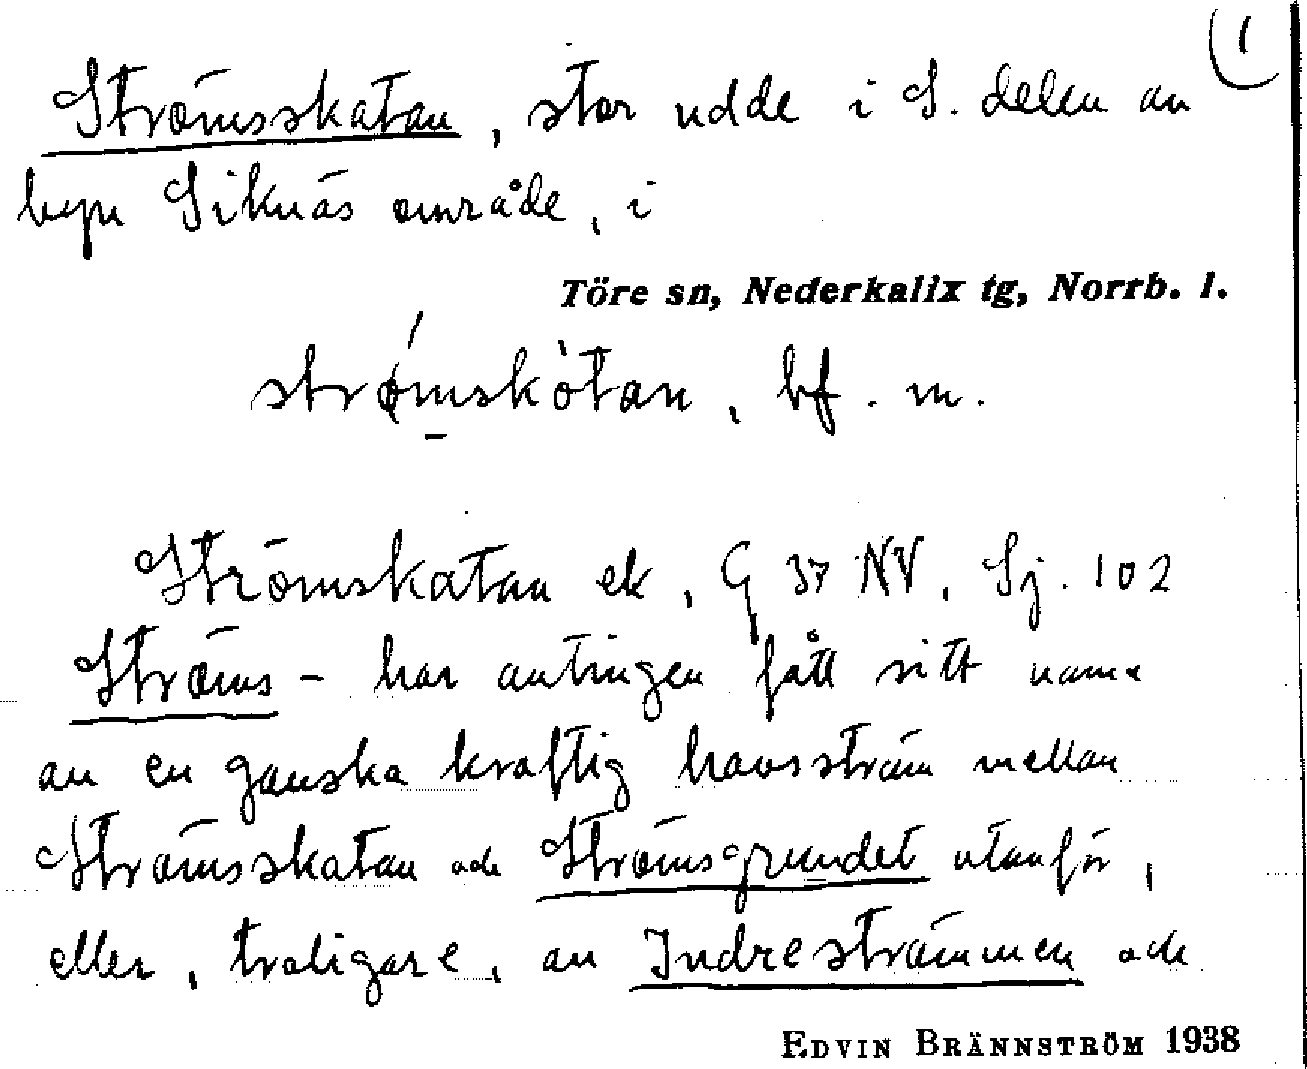 1
Strömsskatan, stor udde i S. delen av
byn Siknäs område, i
Töre sn, Nederkalix tg, Norrb. l.
strømskȯtan, bf. m.
Strömskatan ek, G 37 NV, Sj. 102
Ströms- har antingen fått sitt namn
av en ganska kraftig havsström mellan
Strömsskatan och Strömsgrundet utanför,
eller, troligare, av Indreströmmen och
EDVIN BRÄNNSTRÖM 1938